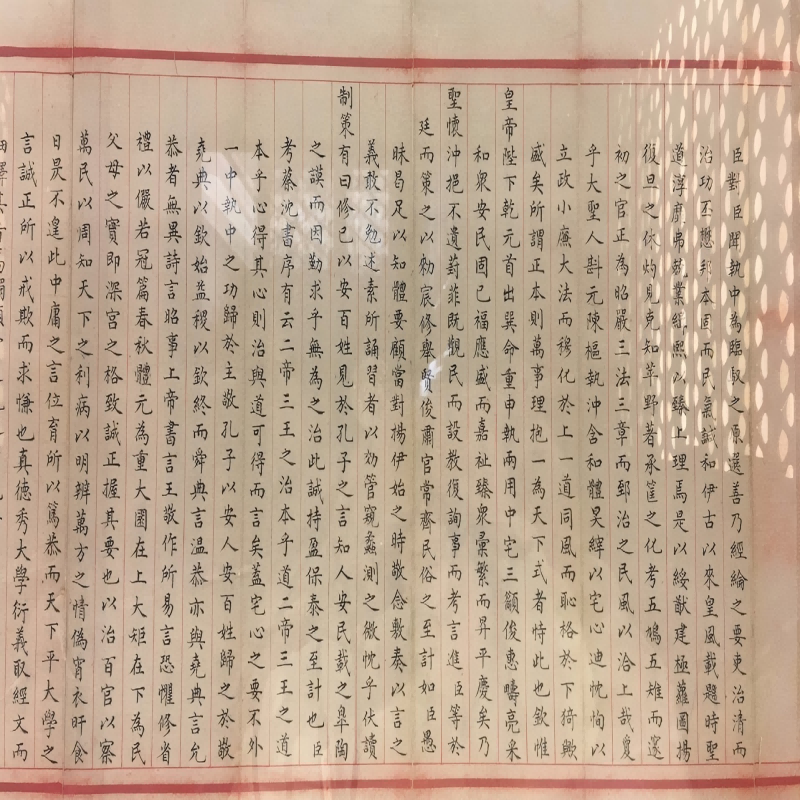 臣對臣聞執中為臨馭之原選善乃經綸之要吏治清而
治功丕懋邦本固而民氣諴和伊古以來皇風載題時聖
道淳龐弗兢業緝熙以臻上理焉是以綏猷建極蘿圖揚
復旦之休灼見克知苹野著承筐之化考五鳩五雉而邃
初之官正為昭嚴三法三章而郅治之民風以洽上哉敻
乎大聖人斟元陳樞執沖含和體昊縡以宅心迪忱恂以
立政小廉大法而穆化於上一道同風而恥格於下猗歟
盛矣所謂正本則萬事理抱一為天下式者恃此也欽惟
皇帝陛下乾元首出巽命重申執兩用中宅三籲俊惠疇亮采
和眾安民固已福應盛而嘉祉臻眾彙繁而昇平慶矣乃
聖懷沖挹不遺葑菲既觀民而設教復詢事而考言進臣等於
廷而策之以勑宸修舉賢俊肅官常齊民俗之至計如臣愚
昧曷足以知體要顧當對揚伊始之時敬念敷奏以言之
義敢不勉述素所誦習者以効管窺蠡測之微忱乎伏讀
制策有曰修己以安百姓見於孔子之言知人安民載之皋陶
之謨而因勤求乎無為之治此誠持盈保泰之至計也臣
考蔡沈書序有云二帝三王之治本乎道二帝三王之道
本乎心得其心則治與道可得而言矣蓋宅心之要不外
一中執中之功歸於主敬孔子以安人安百姓歸之於敬
堯典以欽始益稷以欽終而舜典言溫恭亦與堯典言允
恭者無異詩言昭事上帝書言王敬作所易言恐懼修省
禮以儼若冠篇春秋體元為重大圜在上大矩在下為民
父母之實即深宮之格致誠正握其要也以治百官以察
萬民以周知天下之利病以明辨萬方之情偽宵衣旰食
日昃不遑此中庸之言位育所以篤恭而天下平大學之
言誠正所以戒欺而求慊也真德秀大學衍義取經文而